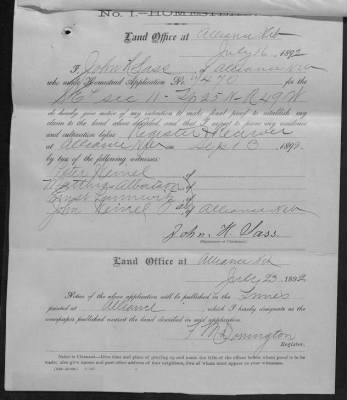 No. 1.—HOMESTEAD.
Land Office at Alliance Neb
July 16, 1892
I, John H. Sass, of Alliance Neb
who made Homestead Application No. for the
NE¼ sec 11 - Tp 25 N - R 49 W
do hereby give notice of my intention to make final proof to establish my
claim to the land above described, and that I expect to prove my residence
and cultivation before Register & Receiver
at Alliance Neb on Sept 1892
by two of the following witnesses:
Peter of
of
Ernst of
John of Alliance Neb
John H. Sass
(Signature of Claimant.)
Land Office at Alliance Neb
July 23, 1892
Notice of the above application will be published in the Times
printed at Alliance, which I hereby designate as the
newspaper published nearest the land described in said application.
Register.
Notice to Claimant.—Give time and place of proving up and name the title of the officer before whom proof is to be
made; also give names and post office address of four neighbors, two of whom must appear as your witnesses.